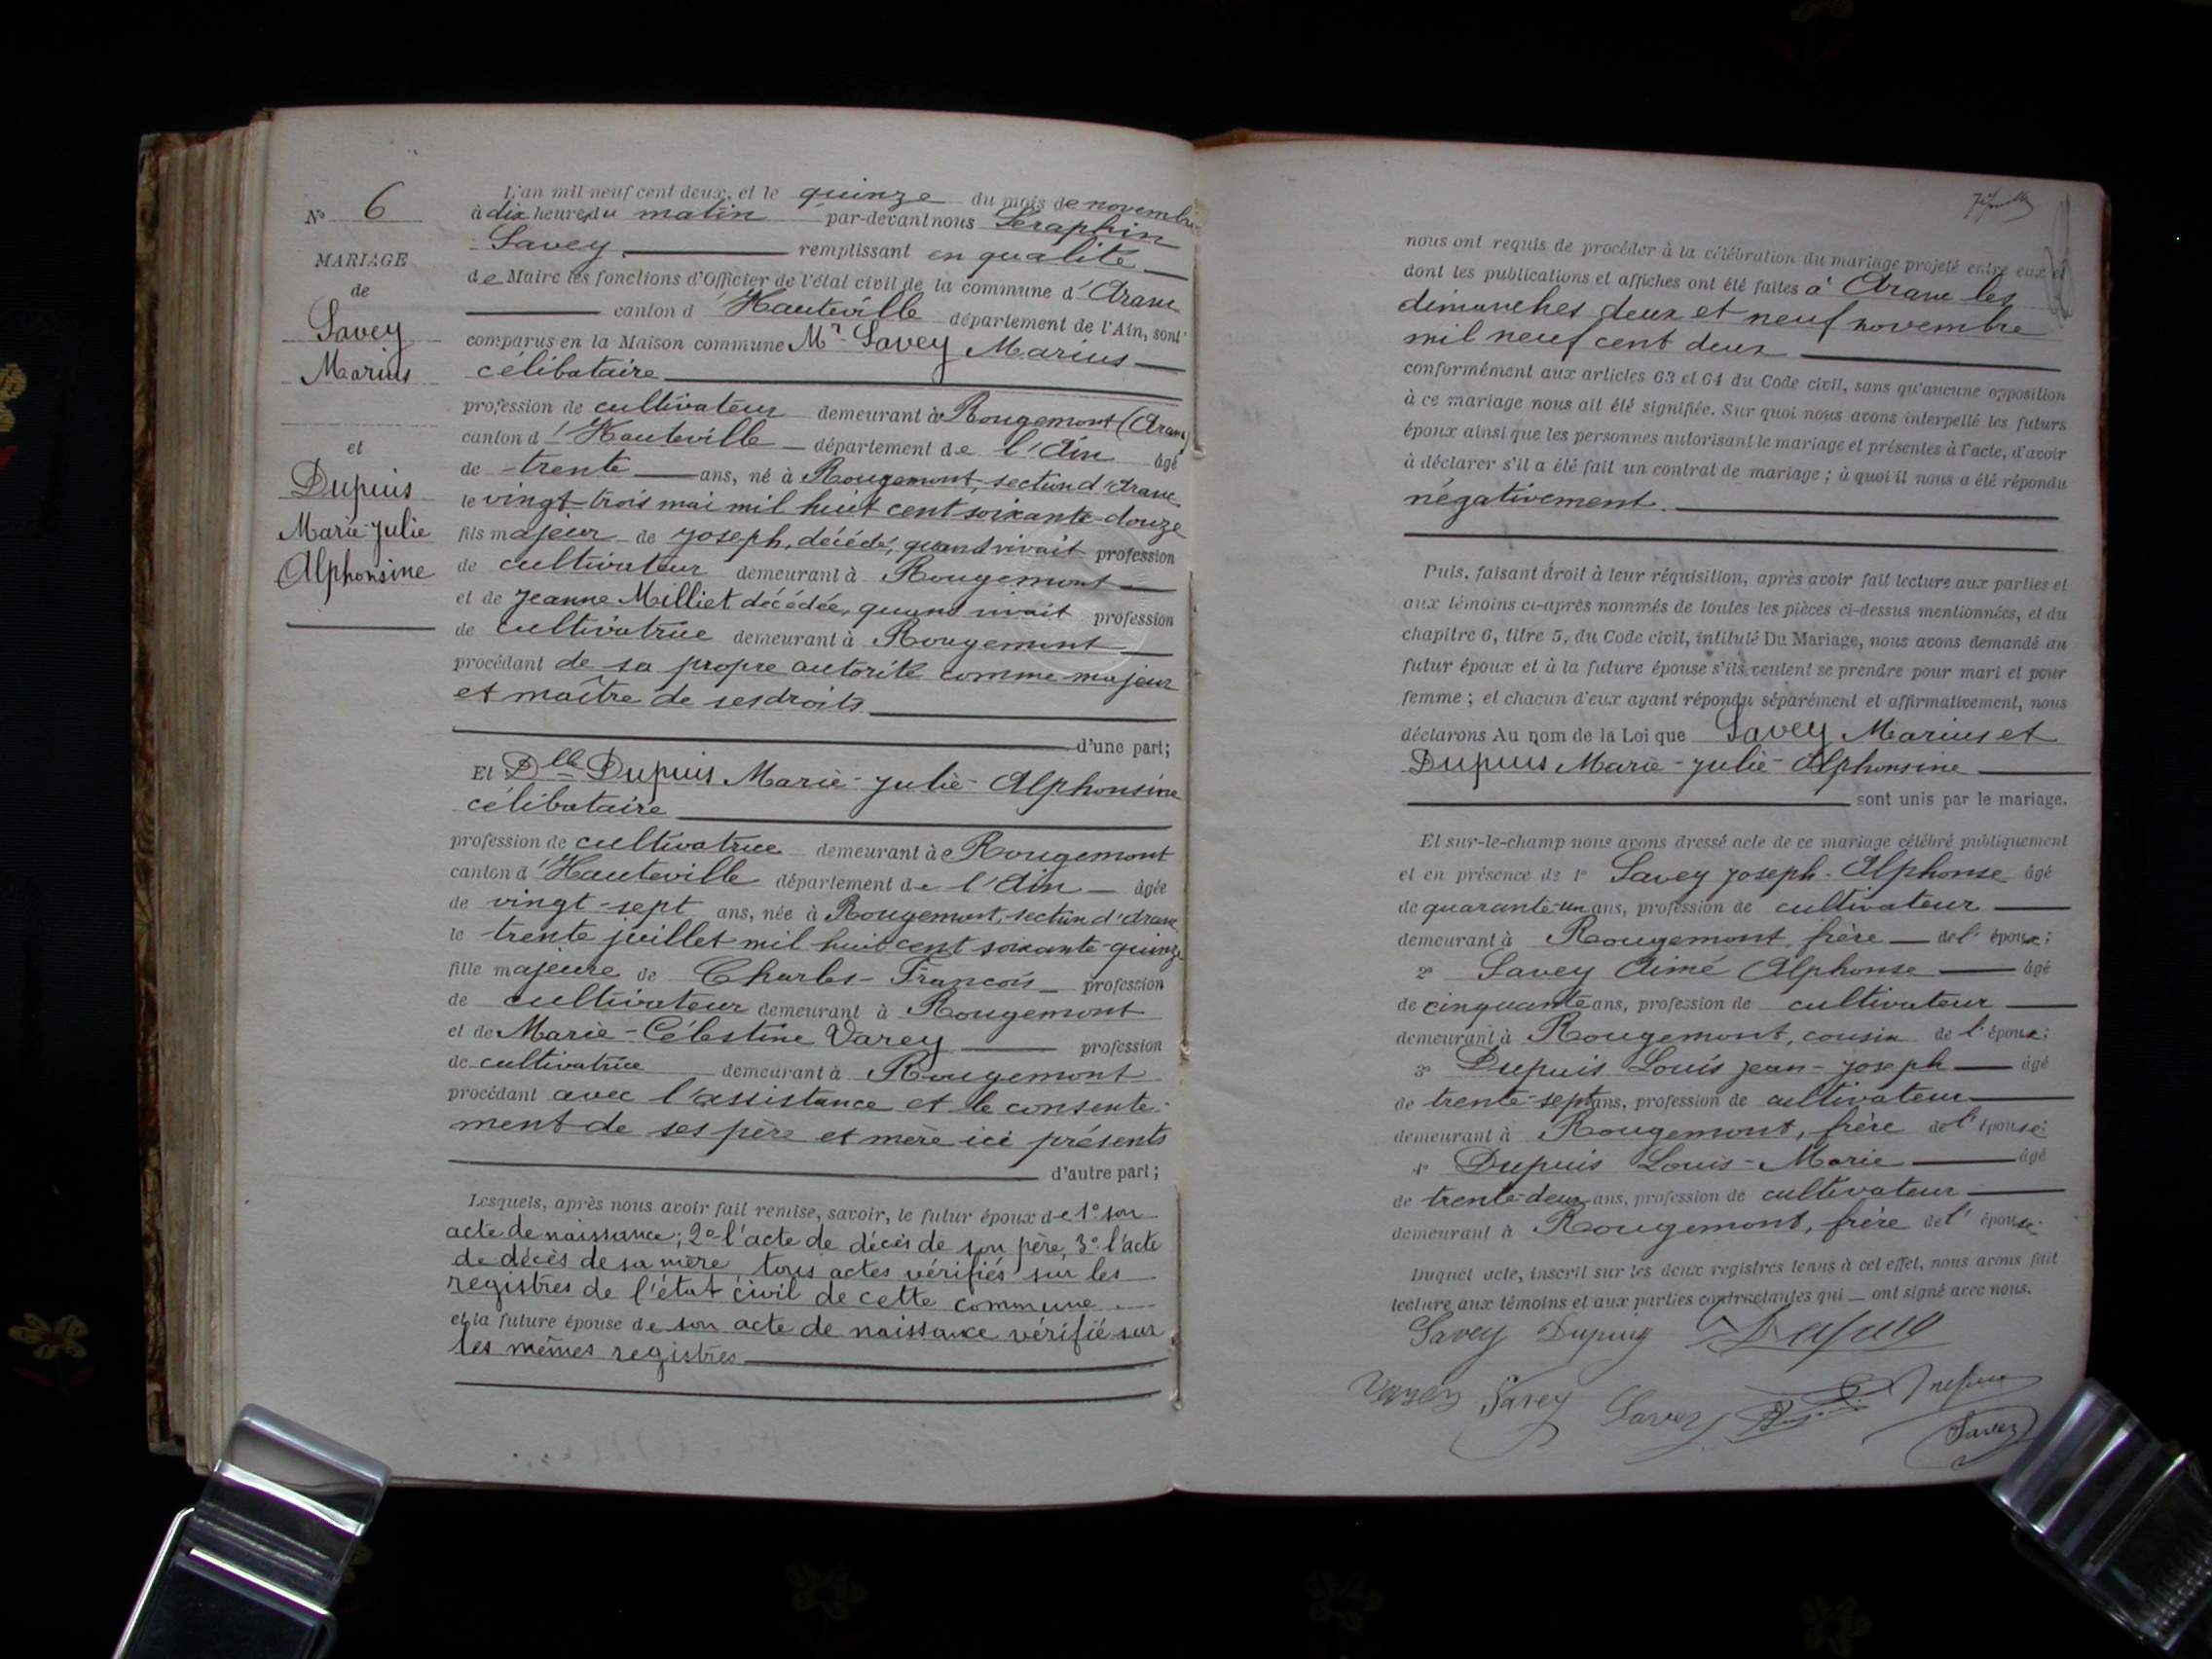 N° 6
MARIAGE
de
Savey
Marius
et
Dupuis
Marie-Julie
Alphonsine
L'an mil neuf cent deux, et le quinze du mois de novembre
à dix heures du matin par-devant nous Séraphin
Savey remplissant en qualité
de Maire les fonctions d'Officier de l'état civil de la commune d'Aranc
canton d'Hauteville département de l'Ain, sont
comparus en la Maison commune Mr Savey Marius
célibataire
profession de cultivateur demeurant à Rougemont (Aranc)
canton d'Hauteville département de l'Ain âgé
de trente ans, né à Rougemont, section d'Aranc
le vingt-trois mai mil huit cent soixante-douze
fils majeur de Joseph, décédé, quand vivait profession
de cultivateur demeurant à Rougemont
et de Jeanne Milliet décédée, quand vivait profession
de cultivatrice demeurant à Rougemont
procédant de sa propre autorité comme majeur
et maître de ses droits
d'une part;
Et Dlle Dupuis Marie-Julie-Alphonsine
célibataire
profession de cultivatrice demeurant à Rougemont
canton d'Hauteville département de l'Ain âgée
de vingt-sept ans, née à Rougemont, section d'Aranc
le trente juillet mil huit cent soixante-quinze
fille majeure de Charles-François profession
de cultivateur demeurant à Rougemont
et de Marie-Célestine Varey profession
de cultivatrice demeurant à Rougemont
procédant avec l'assistance et le consente-
ment de ses père et mère ici présents
d'autre part;
Lesquels, après nous avoir fait remise, savoir, le futur époux de 1° son
acte de naissance; 2° l'acte de décès de son père, 3° l'acte
de décès de sa mère, tous actes vérifiés sur les
registres de l'état civil de cette commune
et la future épouse de son acte de naissance vérifié sur
les mêmes registres
nous ont requis de procéder à la célébration du mariage projeté entre eux et
dont les publications et affiches ont été faites à Aranc les
dimanches deux et neuf novembre
mil neuf cent deux
conformément aux articles 63 et 64 du Code civil, sans qu'aucune opposition
à ce mariage nous ait été signifiée. Sur quoi nous avons interpellé les futurs
époux ainsi que les personnes autorisant le mariage et présentes à l'acte, d'avoir
à déclarer s'il a été fait un contrat de mariage; à quoi il nous a été répondu
négativement.
Puis, faisant droit à leur réquisition, après avoir fait lecture aux parties et
aux témoins ci-après nommés de toutes les pièces ci-dessus mentionnées, et du
chapitre 6, titre 5, du Code civil, intitulé Du Mariage, nous avons demandé au
futur époux et à la future épouse s'ils veulent se prendre pour mari et pour
femme; et chacun d'eux ayant répondu séparément et affirmativement, nous
déclarons Au nom de la Loi que Savey Marius et
Dupuis Marie-Julie-Alphonsine
sont unis par le mariage.
Et sur-le-champ nous avons dressé acte de ce mariage célébré publiquement
et en présence de 1° Savey Joseph-Alphonse âgé
de quarante-un ans, profession de cultivateur
demeurant à Rougemont, frère de l'époux;
2° Savey Aimé Alphonse âgé
de cinquante ans, profession de cultivateur
demeurant à Rougemont, cousin de l'époux;
3° Dupuis Louis Jean-Joseph âgé
de trente-sept ans, profession de cultivateur
demeurant à Rougemont, frère de l'épouse;
4° Dupuis Louis-Marie âgé
de trente-deux ans, profession de cultivateur
demeurant à Rougemont, frère de l'épouse.
Duquel acte, inscrit sur les deux registres tenus à cet effet, nous avons fait
lecture aux témoins et aux parties contractantes qui ont signé avec nous.
Savey Dupuis
Savey Savey
Savey